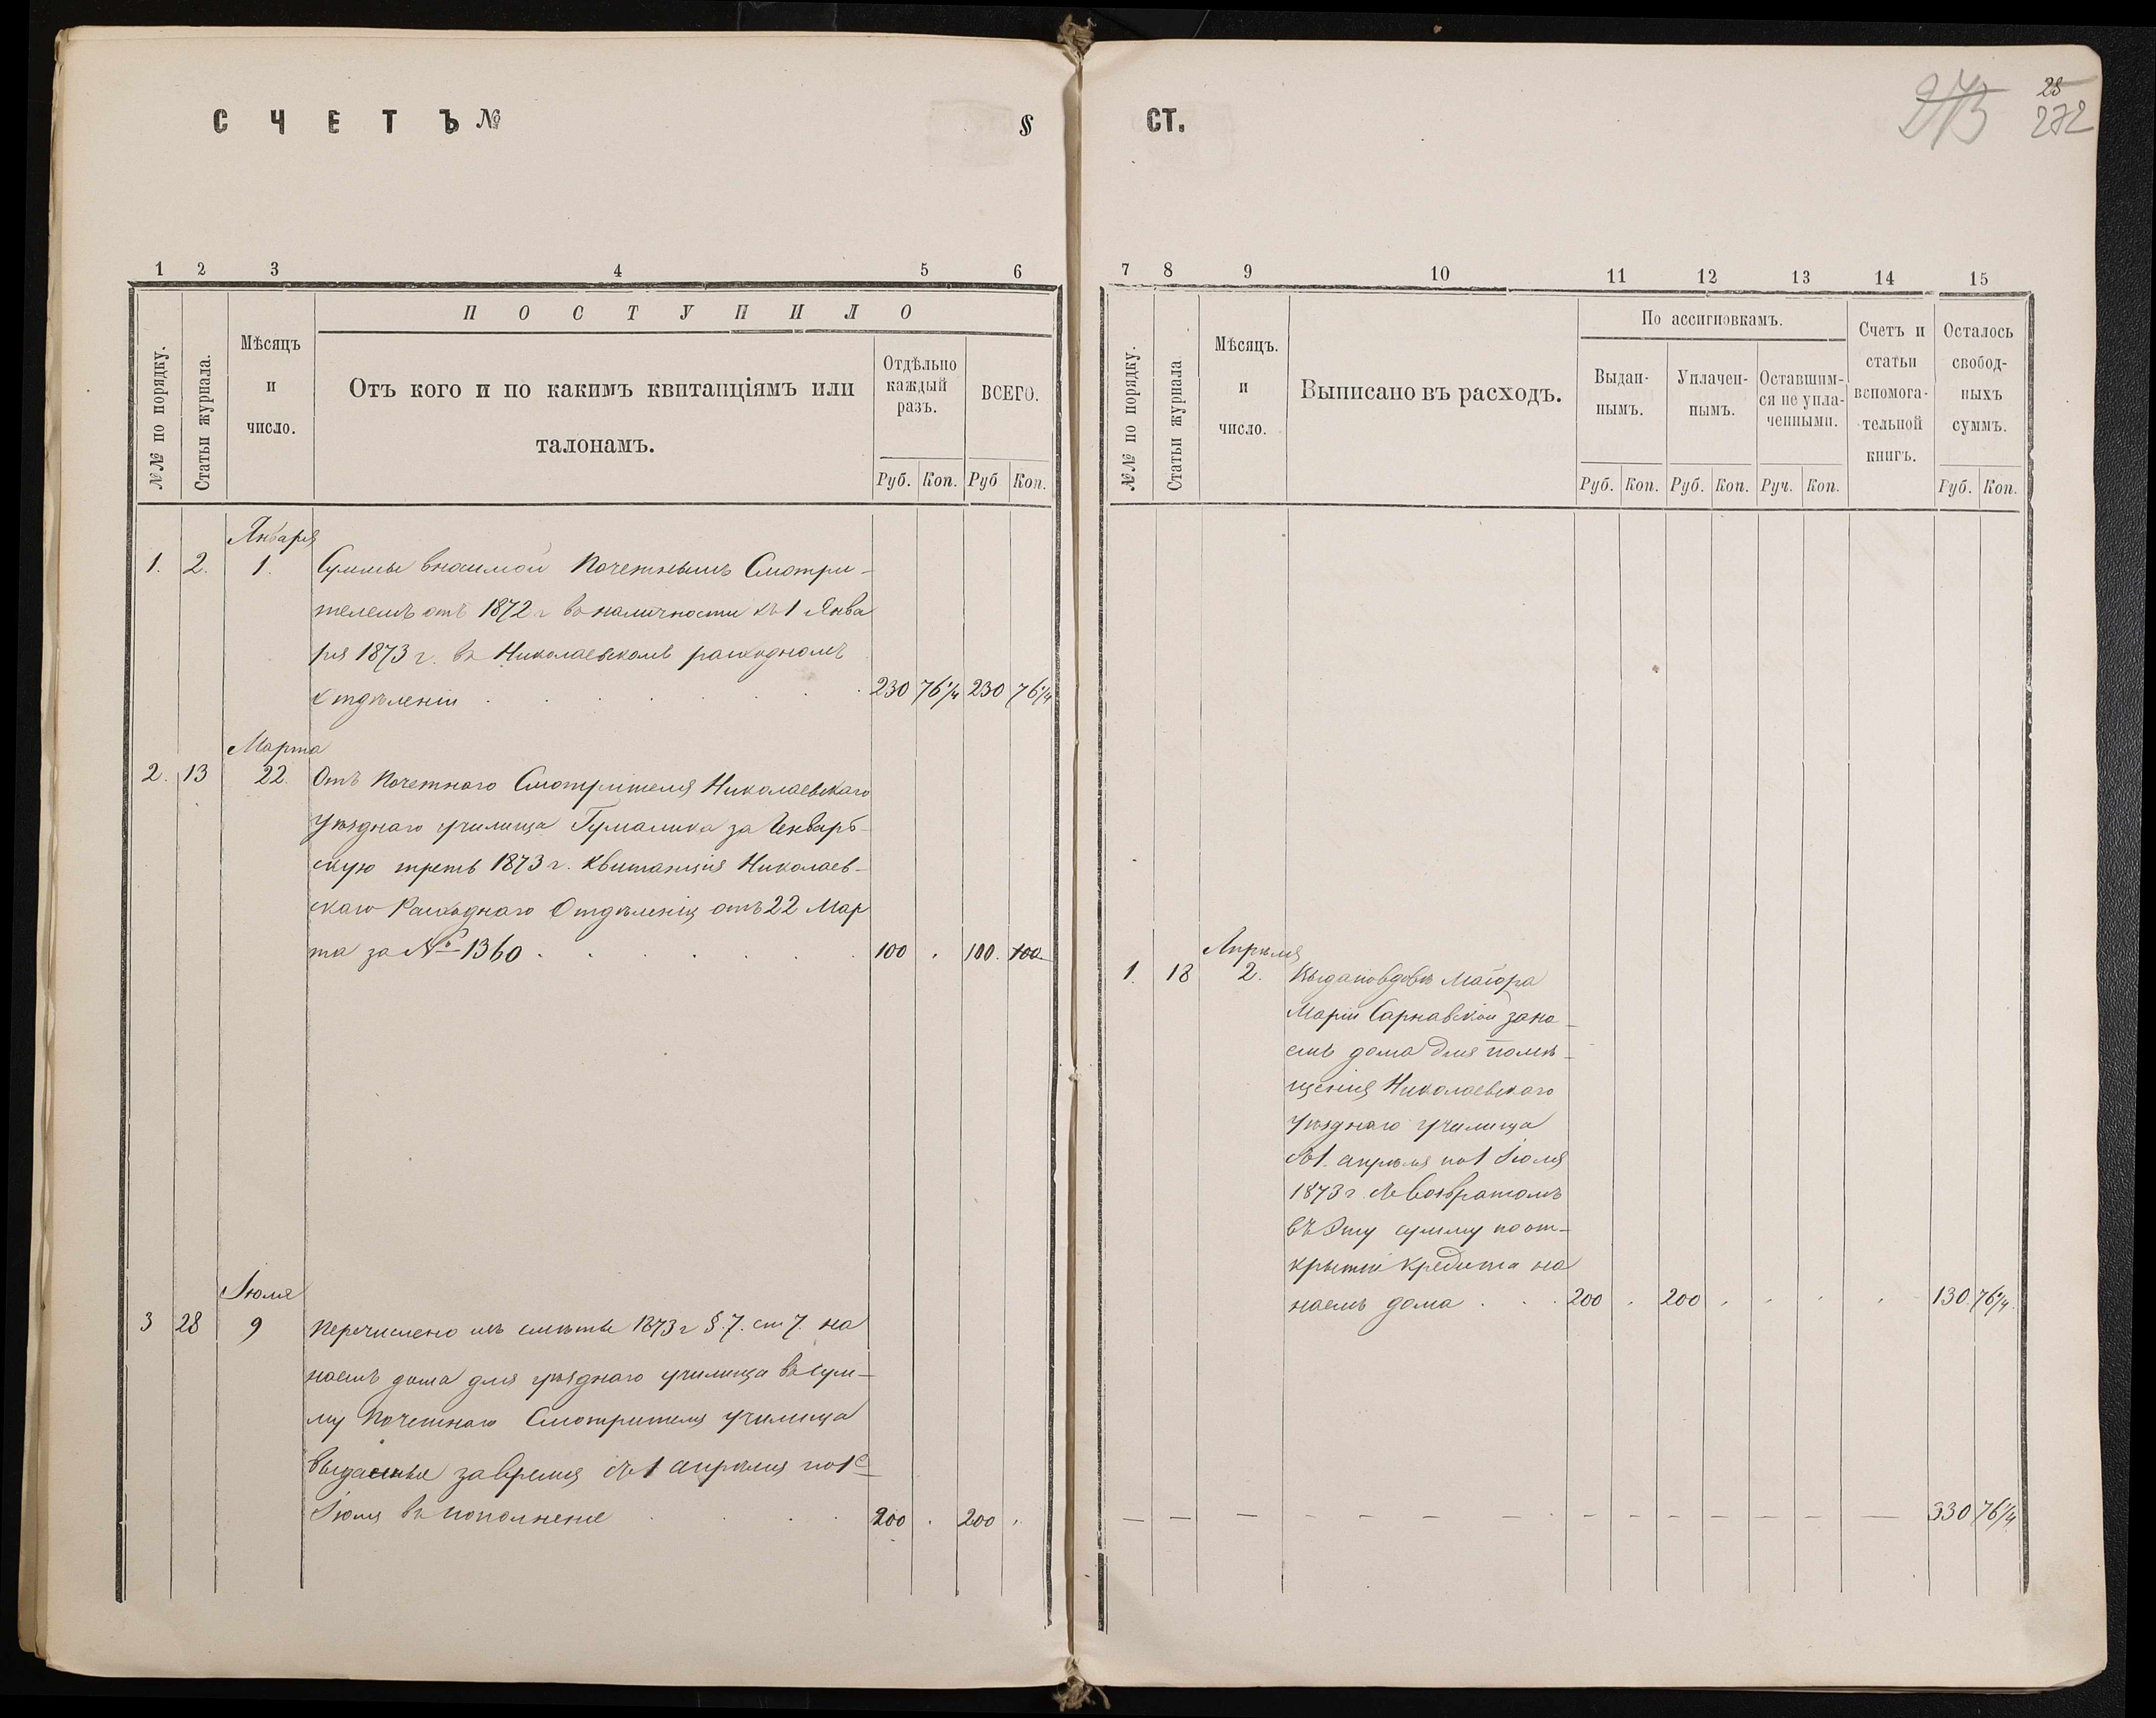 СЧЕТЪ №
§
СТ.
273
28
272
1 2 3 4 5 6
№№ по порядку.
Статьи журнала.
Мѣсяцъ
и
число.
ПОСТУПИЛО
Отъ кого и по какимъ квитанціямъ или
талонамъ.
Отдѣльно
каждый
разъ.
ВСЕГО.
Руб. Коп. Руб Коп.
Января
1. 2. 1. Суммы вносимой Почетнымъ Смотри-
телемъ отъ 1872 г въ наличности къ 1 Янва
ря 1873 г. въ Николаевскомъ расходномъ
Отдѣленіи 230 76 1/4 230 76 1/4
Марта
2. 13 22. Отъ Почетнаго Смотрителя Николаевскаго
Уѣзднаго училища за Генварь-
скую треть 1873 г. Квитанція Николаев-
скаго Расходнаго Отдѣленія отъ 22 Мар
та за № 1360 100 100. 100
Іюля
3 28 9 Перечислено изъ смѣты 1873 г §. 7. ст 7. на
наемъ дома для уѣзднаго училища въ сум-
му Почетнаго Смотрителя училища
за время съ 1 апрѣля по 1е
Іюля въ пополненіе 200 200
7 8 9 10 11 12 13 14 15
№№ по порядку.
Статьи журнала
Мѣсяцъ.
и
число.
Выписано въ расходъ.
По ассигновкамъ.
Выдан-
нымъ.
Уплачен-
нымъ.
Оставшим-
ся не упла-
ченными.
Счетъ и
статьи
вспомога-
тельной
книгъ.
Осталось
свобод-
ныхъ
суммъ.
Руб. Коп. Руб. Коп. Руч. Коп. Руб. Коп.
Апрѣля
1. 18 2. Выдано вдовѣ Маіора
Маріи Сарнавской за на-
емъ дома для помѣ-
щенія Николаевскаго
Уѣзднаго училища
съ 1. апрѣля по 1 Іюля
1873 г. съ возвратомъ
въ эту сумму по от-
крытіи кредита на
наемъ дома 200 200 130 76 1/4
— — — — — — — — — — — — — — 330 76 1/4